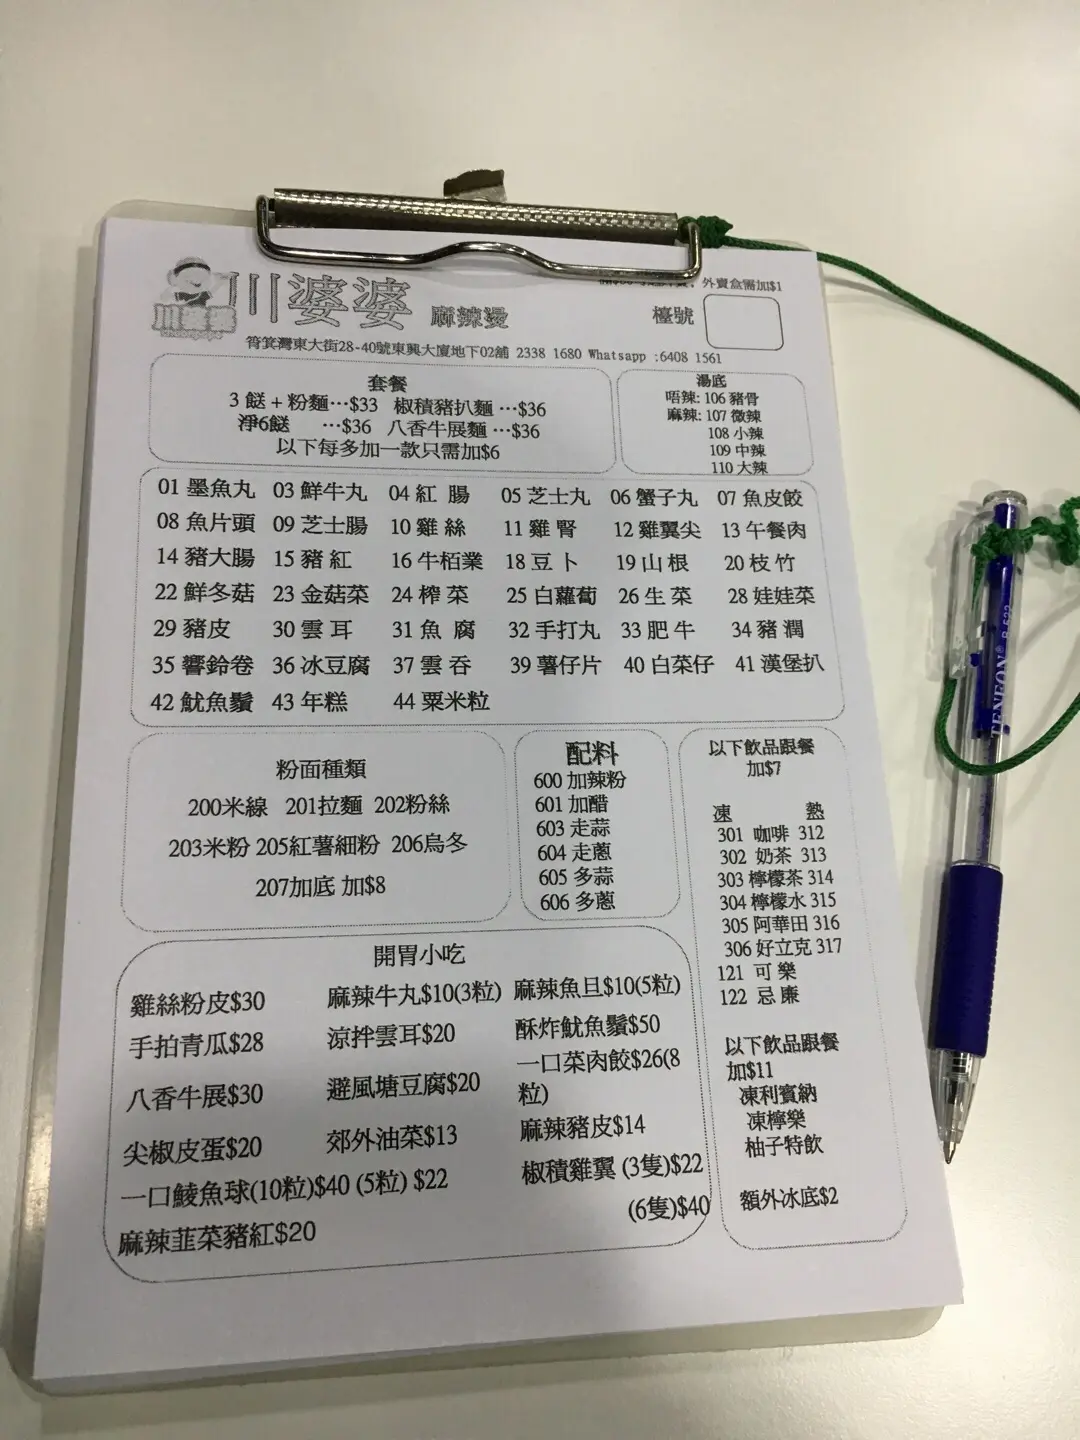 外賣盒需加$1
川婆婆 麻辣燙 檯號
川婆婆
筲箕灣東大街28-40號東興大廈地下02舖 2338 1680 Whatsapp :6408 1561
套餐
3 餸 + 粉麵…$33 椒積豬扒麵 …$36
淨6餸 …$36 八香牛展麵 …$36
以下每多加一款只需加$6
湯底
唔辣: 106 豬骨
麻辣: 107 微辣
108 小辣
109 中辣
110 大辣
01 墨魚丸 03 鮮牛丸 04 紅 腸 05 芝士丸 06 蟹子丸 07 魚皮餃
08 魚片頭 09 芝士腸 10 雞 絲 11 雞 腎 12 雞翼尖 13 午餐肉
14 豬大腸 15 豬 紅 16 牛栢業 18 豆 卜 19 山 根 20 枝 竹
22 鮮冬菇 23 金菇菜 24 榨 菜 25 白蘿蔔 26 生 菜 28 娃娃菜
29 豬皮 30 雲 耳 31 魚 腐 32 手打丸 33 肥 牛 34 豬 潤
35 響鈴卷 36 冰豆腐 37 雲 吞 39 薯仔片 40 白菜仔 41 漢堡扒
42 魷魚鬚 43 年糕 44 粟米粒
粉面種類
200米線 201拉麵 202粉絲
203米粉 205紅薯細粉 206烏冬
207加底 加$8
配料
600 加辣粉
601 加醋
603 走蒜
604 走蔥
605 多蒜
606 多蔥
以下飲品跟餐
加$7
凍 熱
301 咖啡 312
302 奶茶 313
303 檸檬茶 314
304 檸檬水 315
305 阿華田 316
306 好立克 317
121 可 樂
122 忌 廉
以下飲品跟餐
加$11
凍利賓納
凍檸樂
柚子特飲
額外冰底$2
開胃小吃
雞絲粉皮$30 麻辣牛丸$10(3粒) 麻辣魚旦$10(5粒)
手拍青瓜$28 涼拌雲耳$20 酥炸魷魚鬚$50
八香牛展$30 避風塘豆腐$20 一口菜肉餃$26(8
粒)
尖椒皮蛋$20 郊外油菜$13 麻辣豬皮$14
一口鯪魚球(10粒)$40 (5粒) $22 椒積雞翼 (3隻)$22
(6隻)$40
麻辣韮菜豬紅$20
TENFON B-522